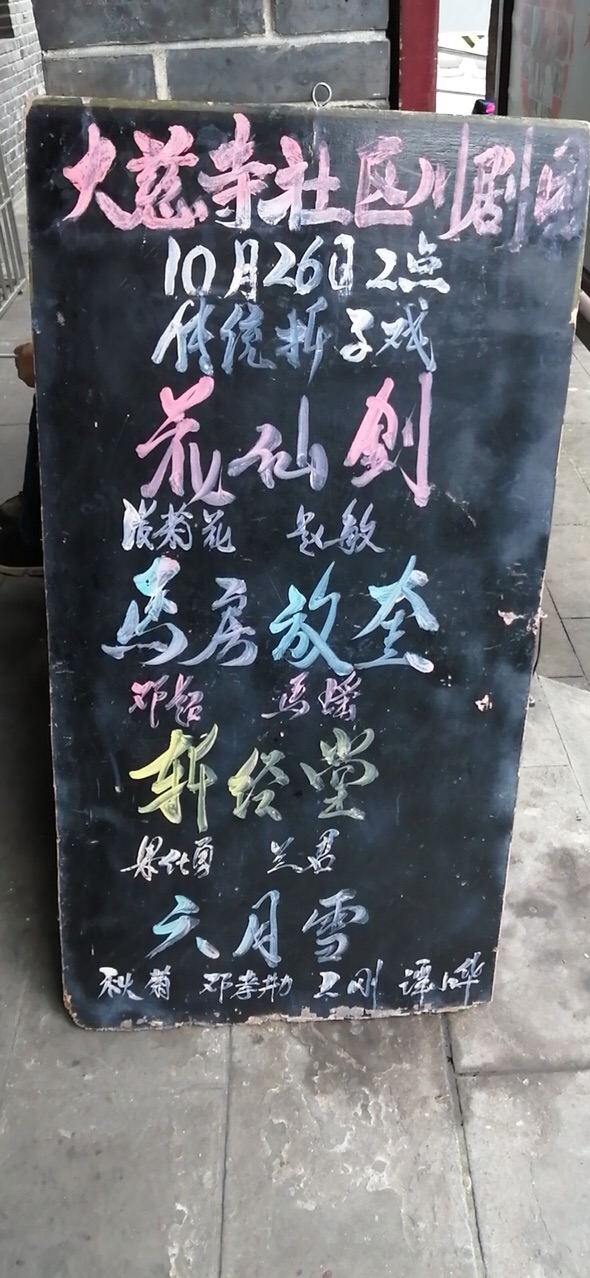 大慈寺社区川剧
10月26日2点
传统折子戏
花仙剑
菊花 赵敏
马房放奎
邓超 马瑶
斩经堂
兰君
六月雪
秋菊 邓孝勤 刚 谭晔